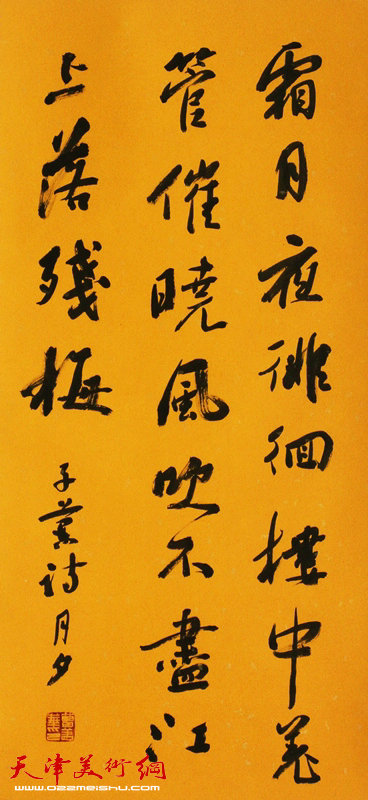 霜月夜徘徊樓中羌
管催曉風吹不盡江
上落殘梅
子詩月夕
天津美術網
www.022meishu.com